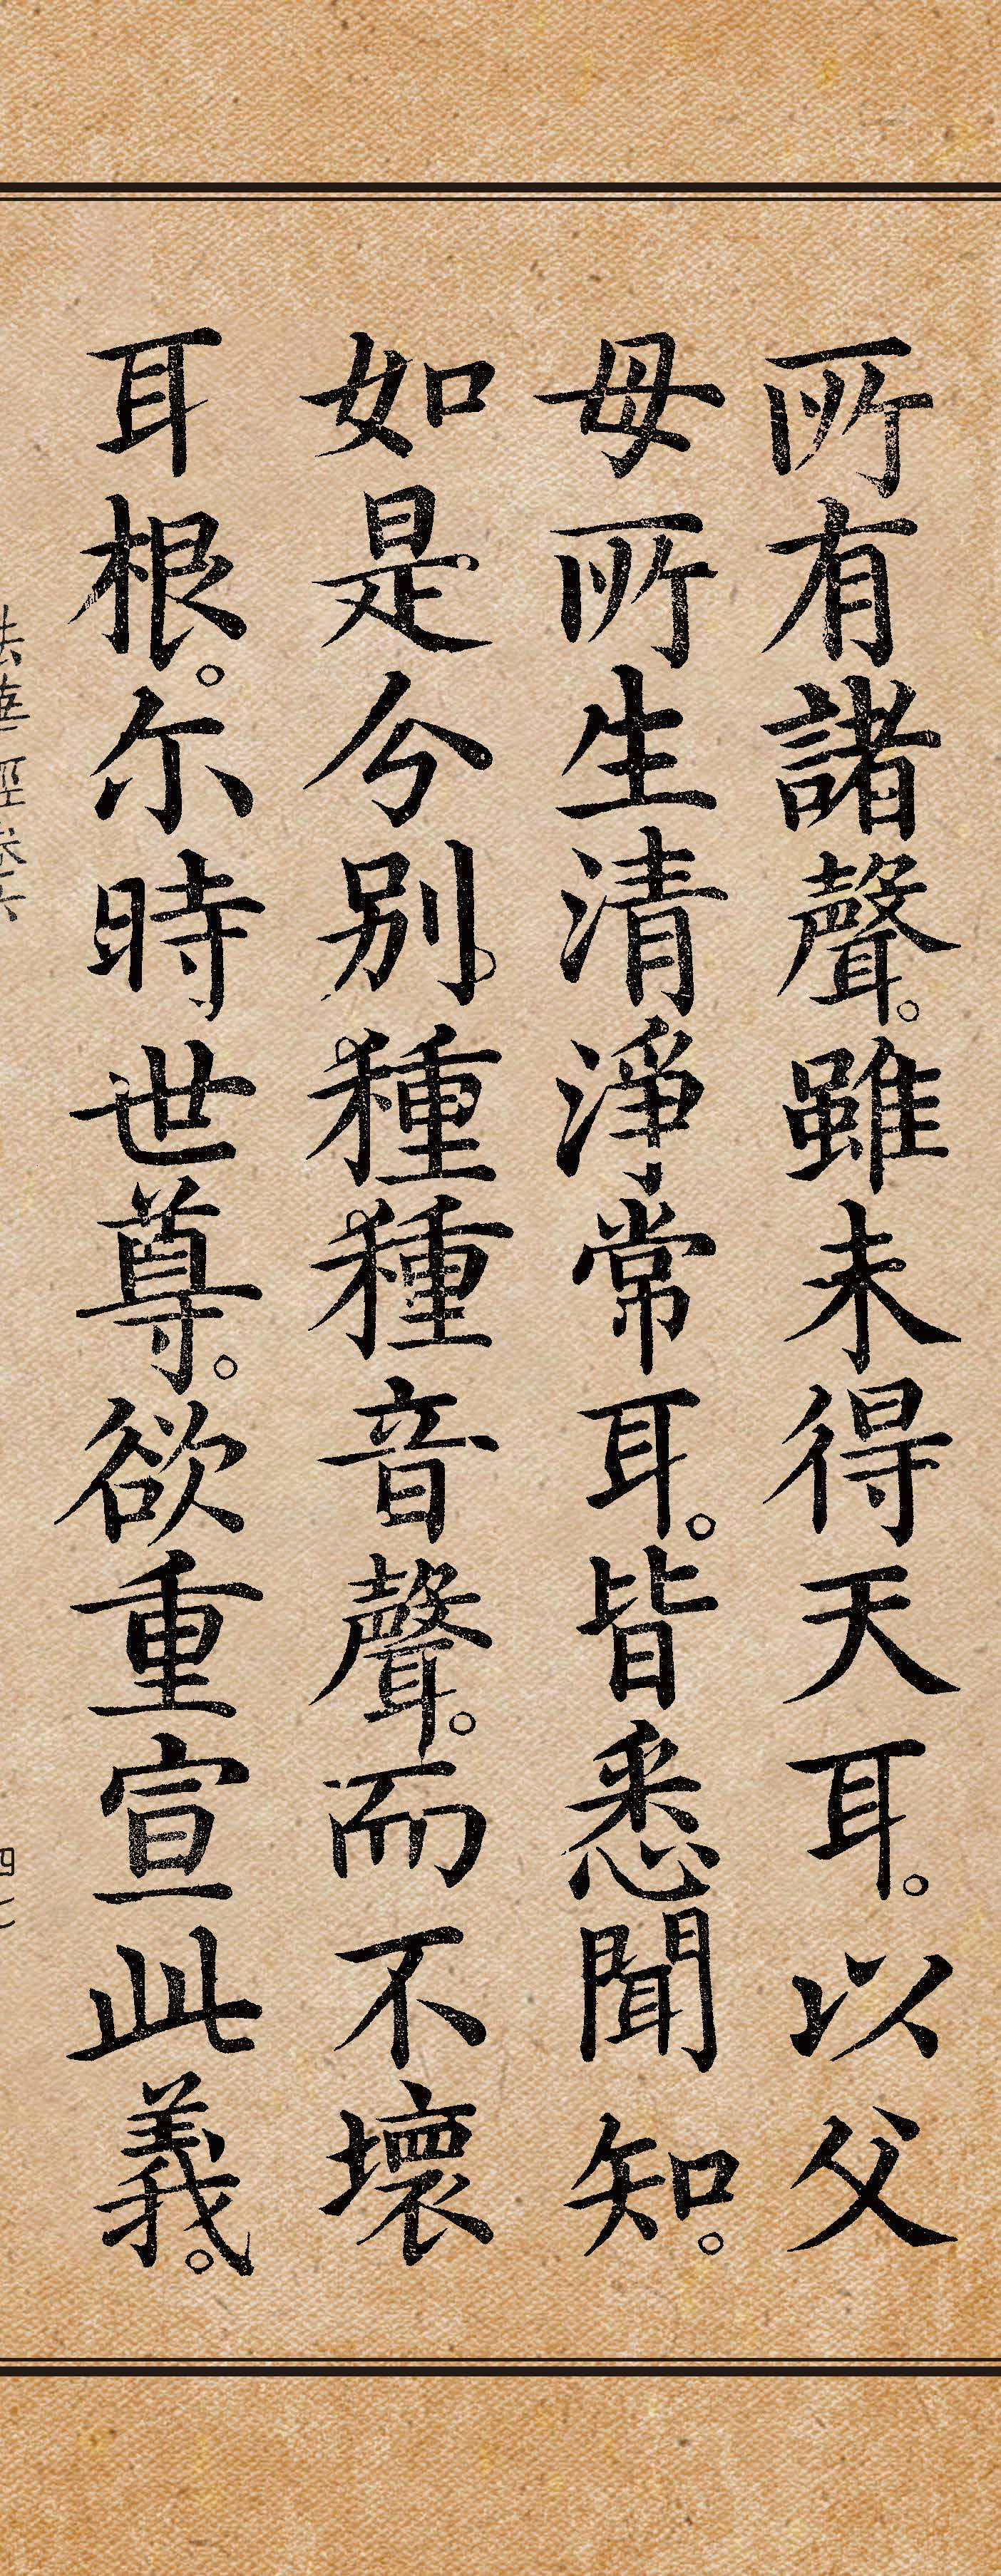 所有諸聲。雖未得天耳。以父
母所生清淨常耳。皆悉聞知。
如是分別種種音聲。而不壞
耳根。尔時世尊。欲重宣此義。
法華經卷六